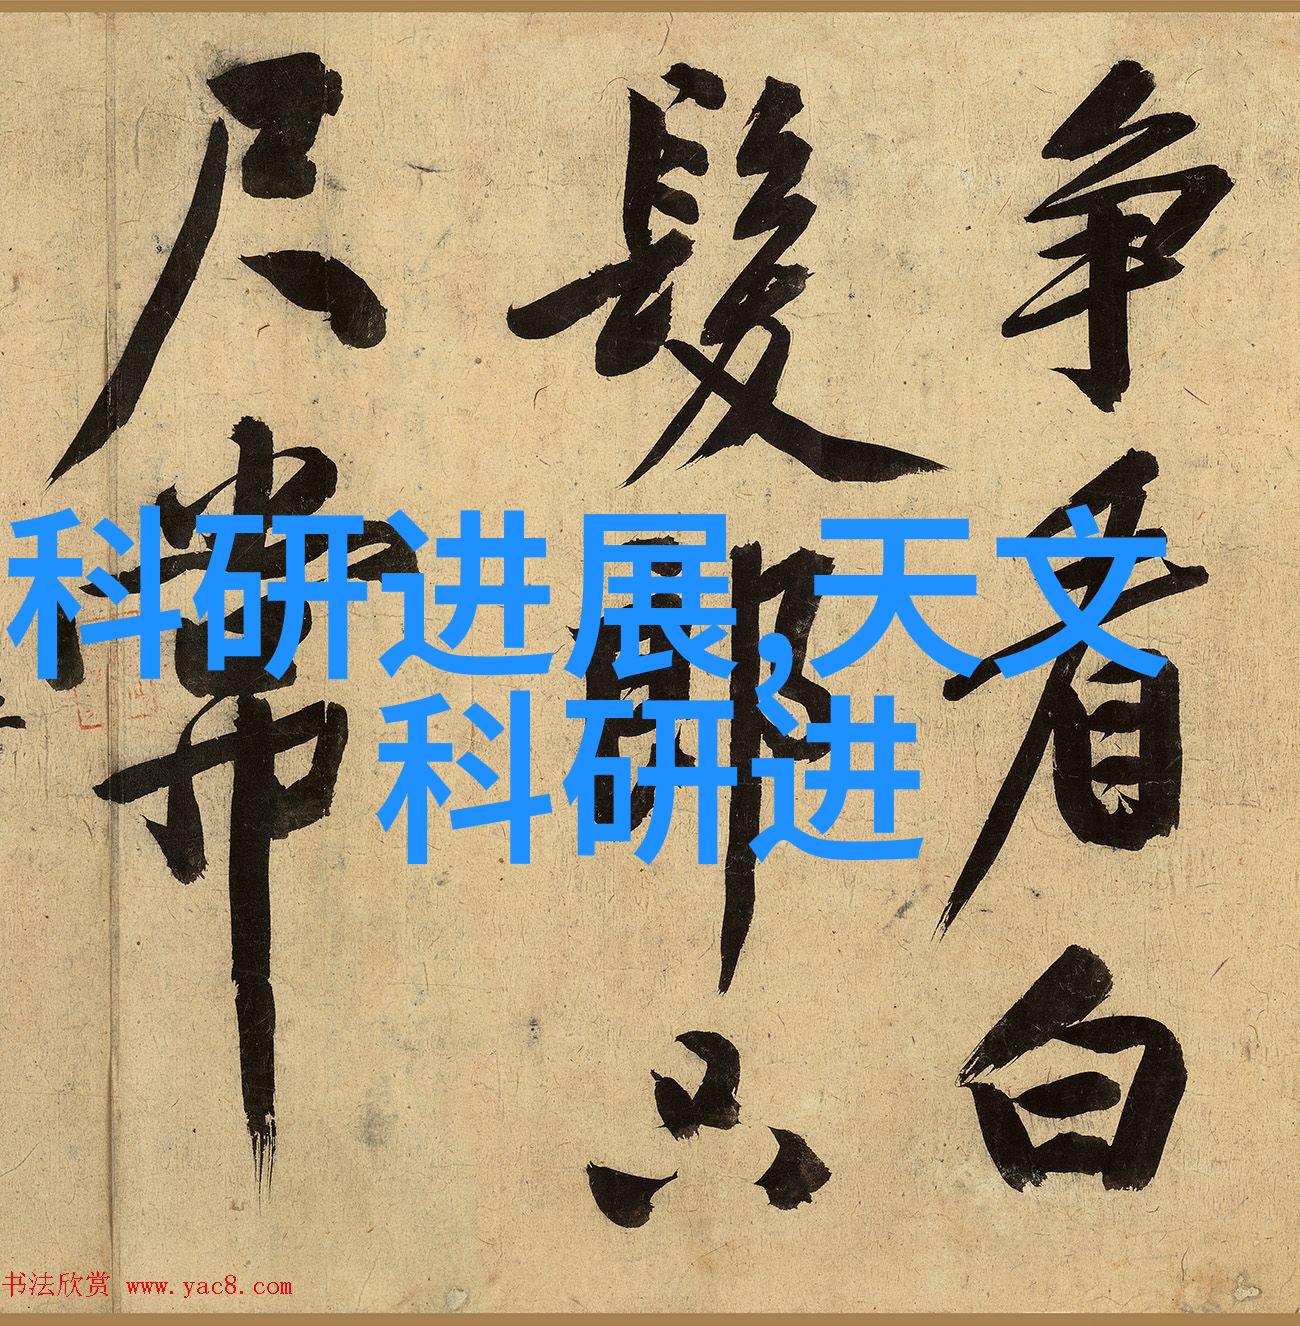 争看白
髮郎只
尺常
科研进展,天文
科研进
书法欣赏 www.yac8.com